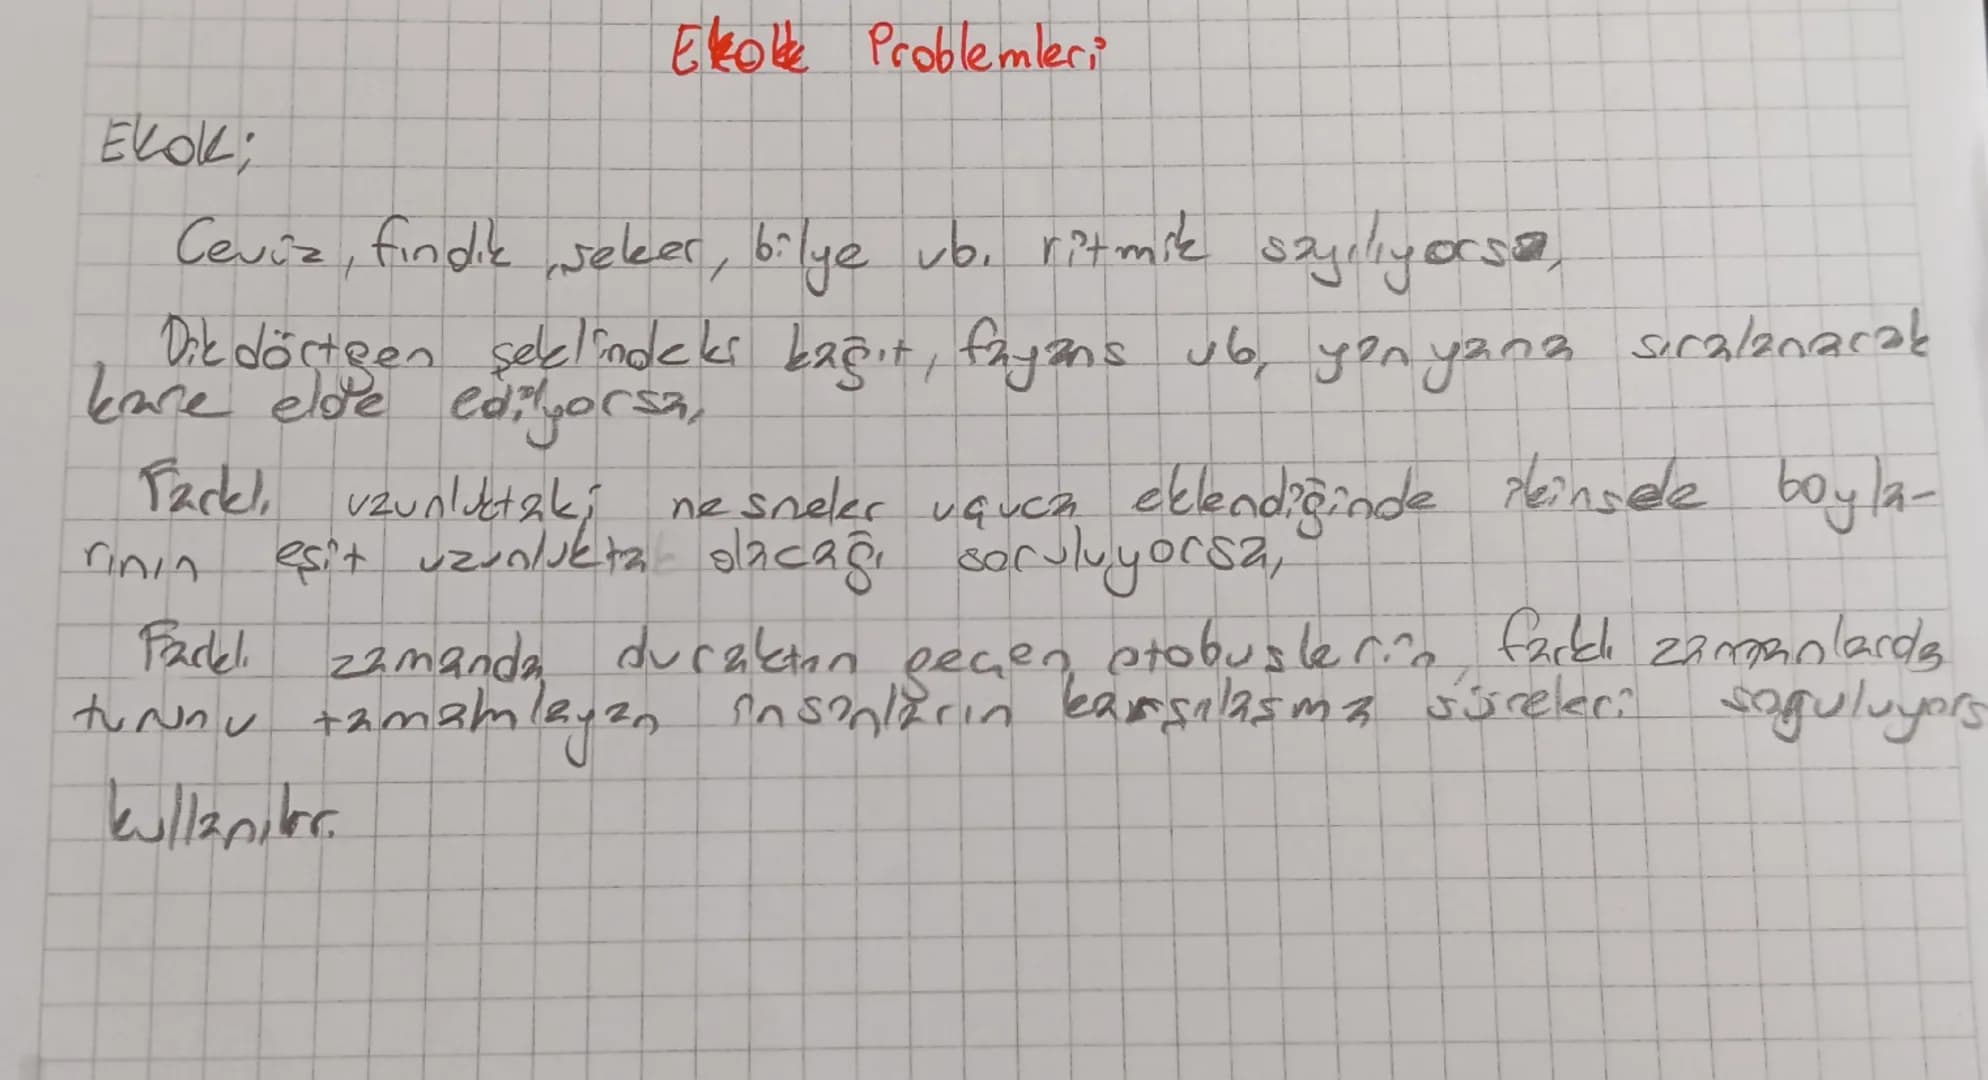 Ekok Problemleri
EKOK;
Ceviz, fındık, şeker, bilye vb. ritmik sayılıyorsa,
Dikdörtgen şeklindeki kağıt, fayans vb, yan yana sıralanarak
kare elde ediliyorsa,
Farklı uzunluktaki nesneler uçuca eklendiğinde boyla-
rının eşit uzunlukta olacağı soruluyorsa,
Farklı zamanda duraktan geçen otobüslerin, farklı zamanlarda
turunu tamamlayan insanların karşılaşma süreleri
kullanılır.